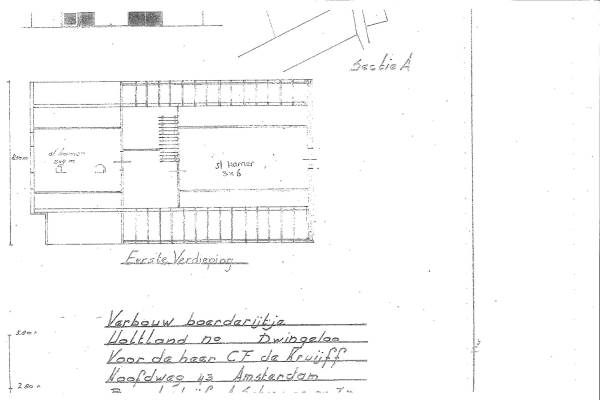 Sectie A
st kamer
st kamer
5x6
Eerste Verdieping
Verbouw boerderijtje
Holtland no Dwingeloo
Voor de heer C F de Kruijff
Hoofdweg 43 Amsterdam
2.80 m